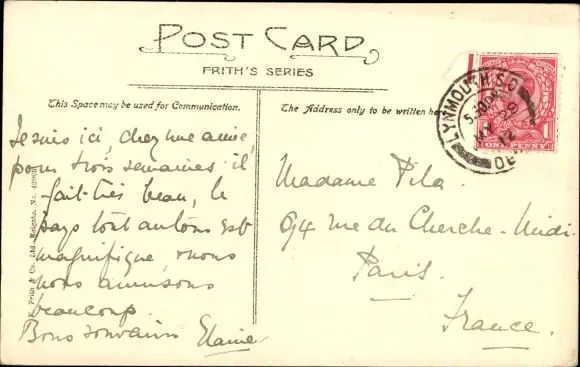 POST CARD
FRITH'S SERIES
This Space may be used for Communication.
The Address only to be written he
Je suis ici, chez une amie,
pour trois semaines il
fait très beau, le
pays tout autour est
magnifique, nous
nous amusons
beaucoup.
Bons souvenirs Elaine
Madame Pila.
94 rue du Cherche-Midi.
Paris.
France.
LYNMOUTH S.O
MY 29
12
DEV
ONE PENNY
1
F. Frith & Co., Ltd. Reigate. No.